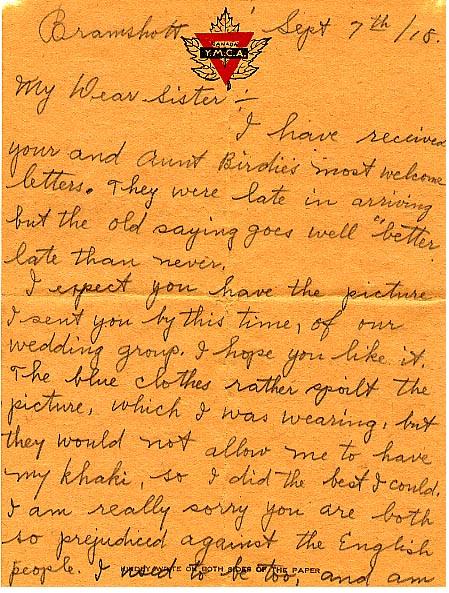 Bramshott Sept 7th/18.
CANADA
Y.M.C.A.
My Dear Sister :-
I have received
your and Aunt Birdie's most welcome
letters. They were late in arriving
but the old saying goes well "better
late than never.
I expect you have the picture
I sent you by this time, of our
wedding group. I hope you like it.
The blue clothes rather spoilt the
picture, which I was wearing, but
they would not allow me to have
my khaki, so I did the best I could.
I am really sorry you are both
so prejudiced against the English
people. I used to be too, and am
KINDLY WRITE ON BOTH SIDES OF THE PAPER